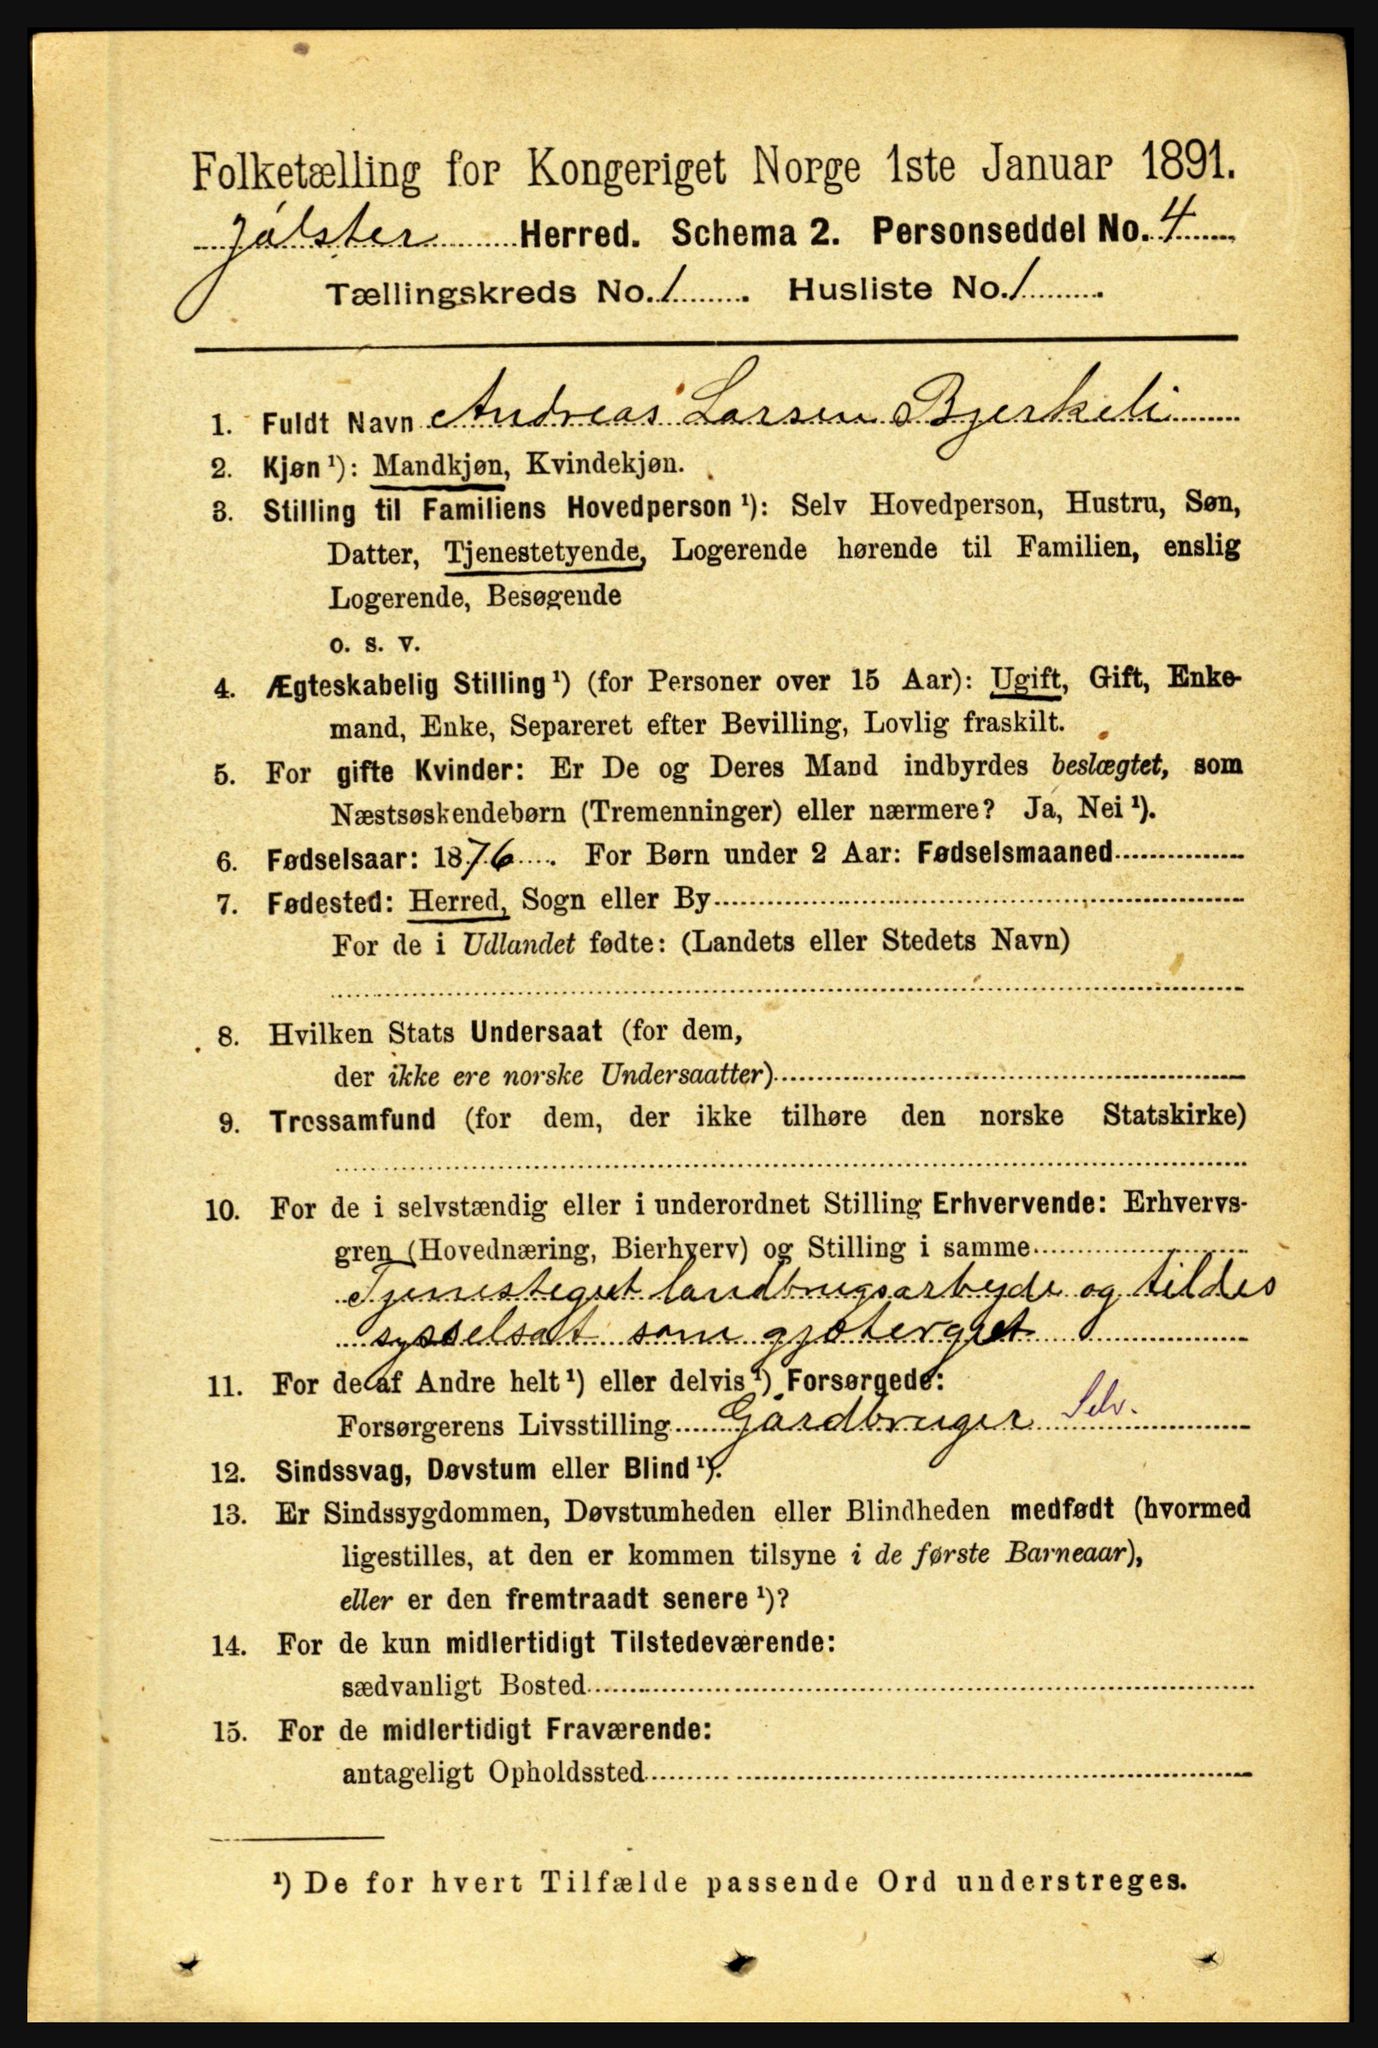 Folketælling for Kongeriget Norge 1ste Januar 1891.
Jølster Herred. Schema 2. Personseddel No. 4
Tællingskreds No. 1. Husliste No. 1.
1. Fuldt Navn Andreas Larsen Bjerkeli
2. Kjøn ¹): Mandkjøn, Kvindekjøn.
3. Stilling til Familiens Hovedperson ¹): Selv Hovedperson, Hustru, Søn,
Datter, Tjenestetyende, Logerende hørende til Familien, enslig
Logerende, Besøgende
o. s. v.
4. Ægteskabelig Stilling ¹) (for Personer over 15 Aar): Ugift, Gift, Enke-
mand, Enke, Separeret efter Bevilling, Lovlig fraskilt.
5. For gifte Kvinder: Er De og Deres Mand indbyrdes beslægtet, som
Næstsøskendebørn (Tremenninger) eller nærmere? Ja, Nei ¹).
6. Fødselsaar: 1876. For Børn under 2 Aar: Fødselsmaaned
7. Fødested: Herred, Sogn eller By
For de i Udlandet fødte: (Landets eller Stedets Navn)
8. Hvilken Stats Undersaat (for dem,
der ikke ere norske Undersaatter)
9. Trossamfund (for dem, der ikke tilhøre den norske Statskirke)
10. For de i selvstændig eller i underordnet Stilling Erhvervende: Erhvervs-
gren (Hovednæring, Bierhverv) og Stilling i samme
Tjenestegut landbrugsarbyde og tildes
sysselsat som gjætergut
11. For de af Andre helt ¹) eller delvis ¹) Forsørgede:
Forsørgerens Livsstilling Gårdbruger Selv.
12. Sindssvag, Døvstum eller Blind ¹).
13. Er Sindssygdommen, Døvstumheden eller Blindheden medfødt (hvormed
ligestilles, at den er kommen tilsyne i de første Barneaar),
eller er den fremtraadt senere ¹)?
14. For de kun midlertidigt Tilstedeværende:
sædvanligt Bosted
15. For de midlertidigt Fraværende:
antageligt Opholdssted
¹) De for hvert Tilfælde passende Ord understreges.